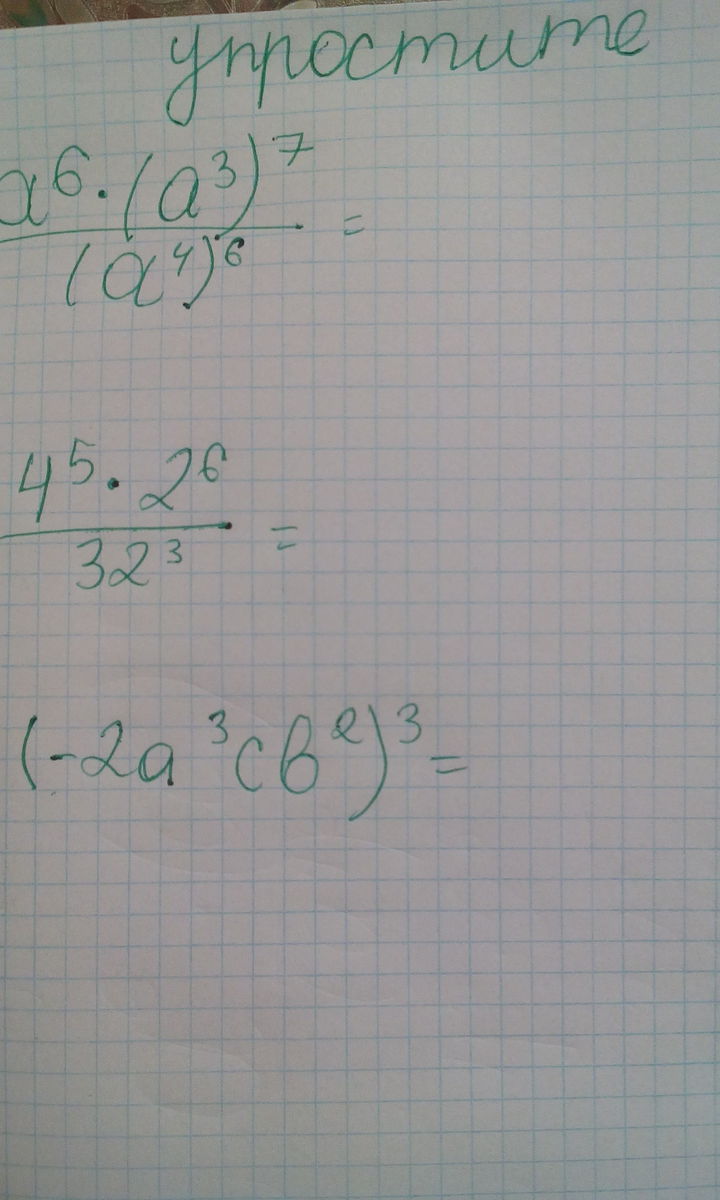 упростите
a⁶·(a³)⁷
(a⁴)⁶ =
4⁵·2⁶
32³ =
(-2a³cb²)³=